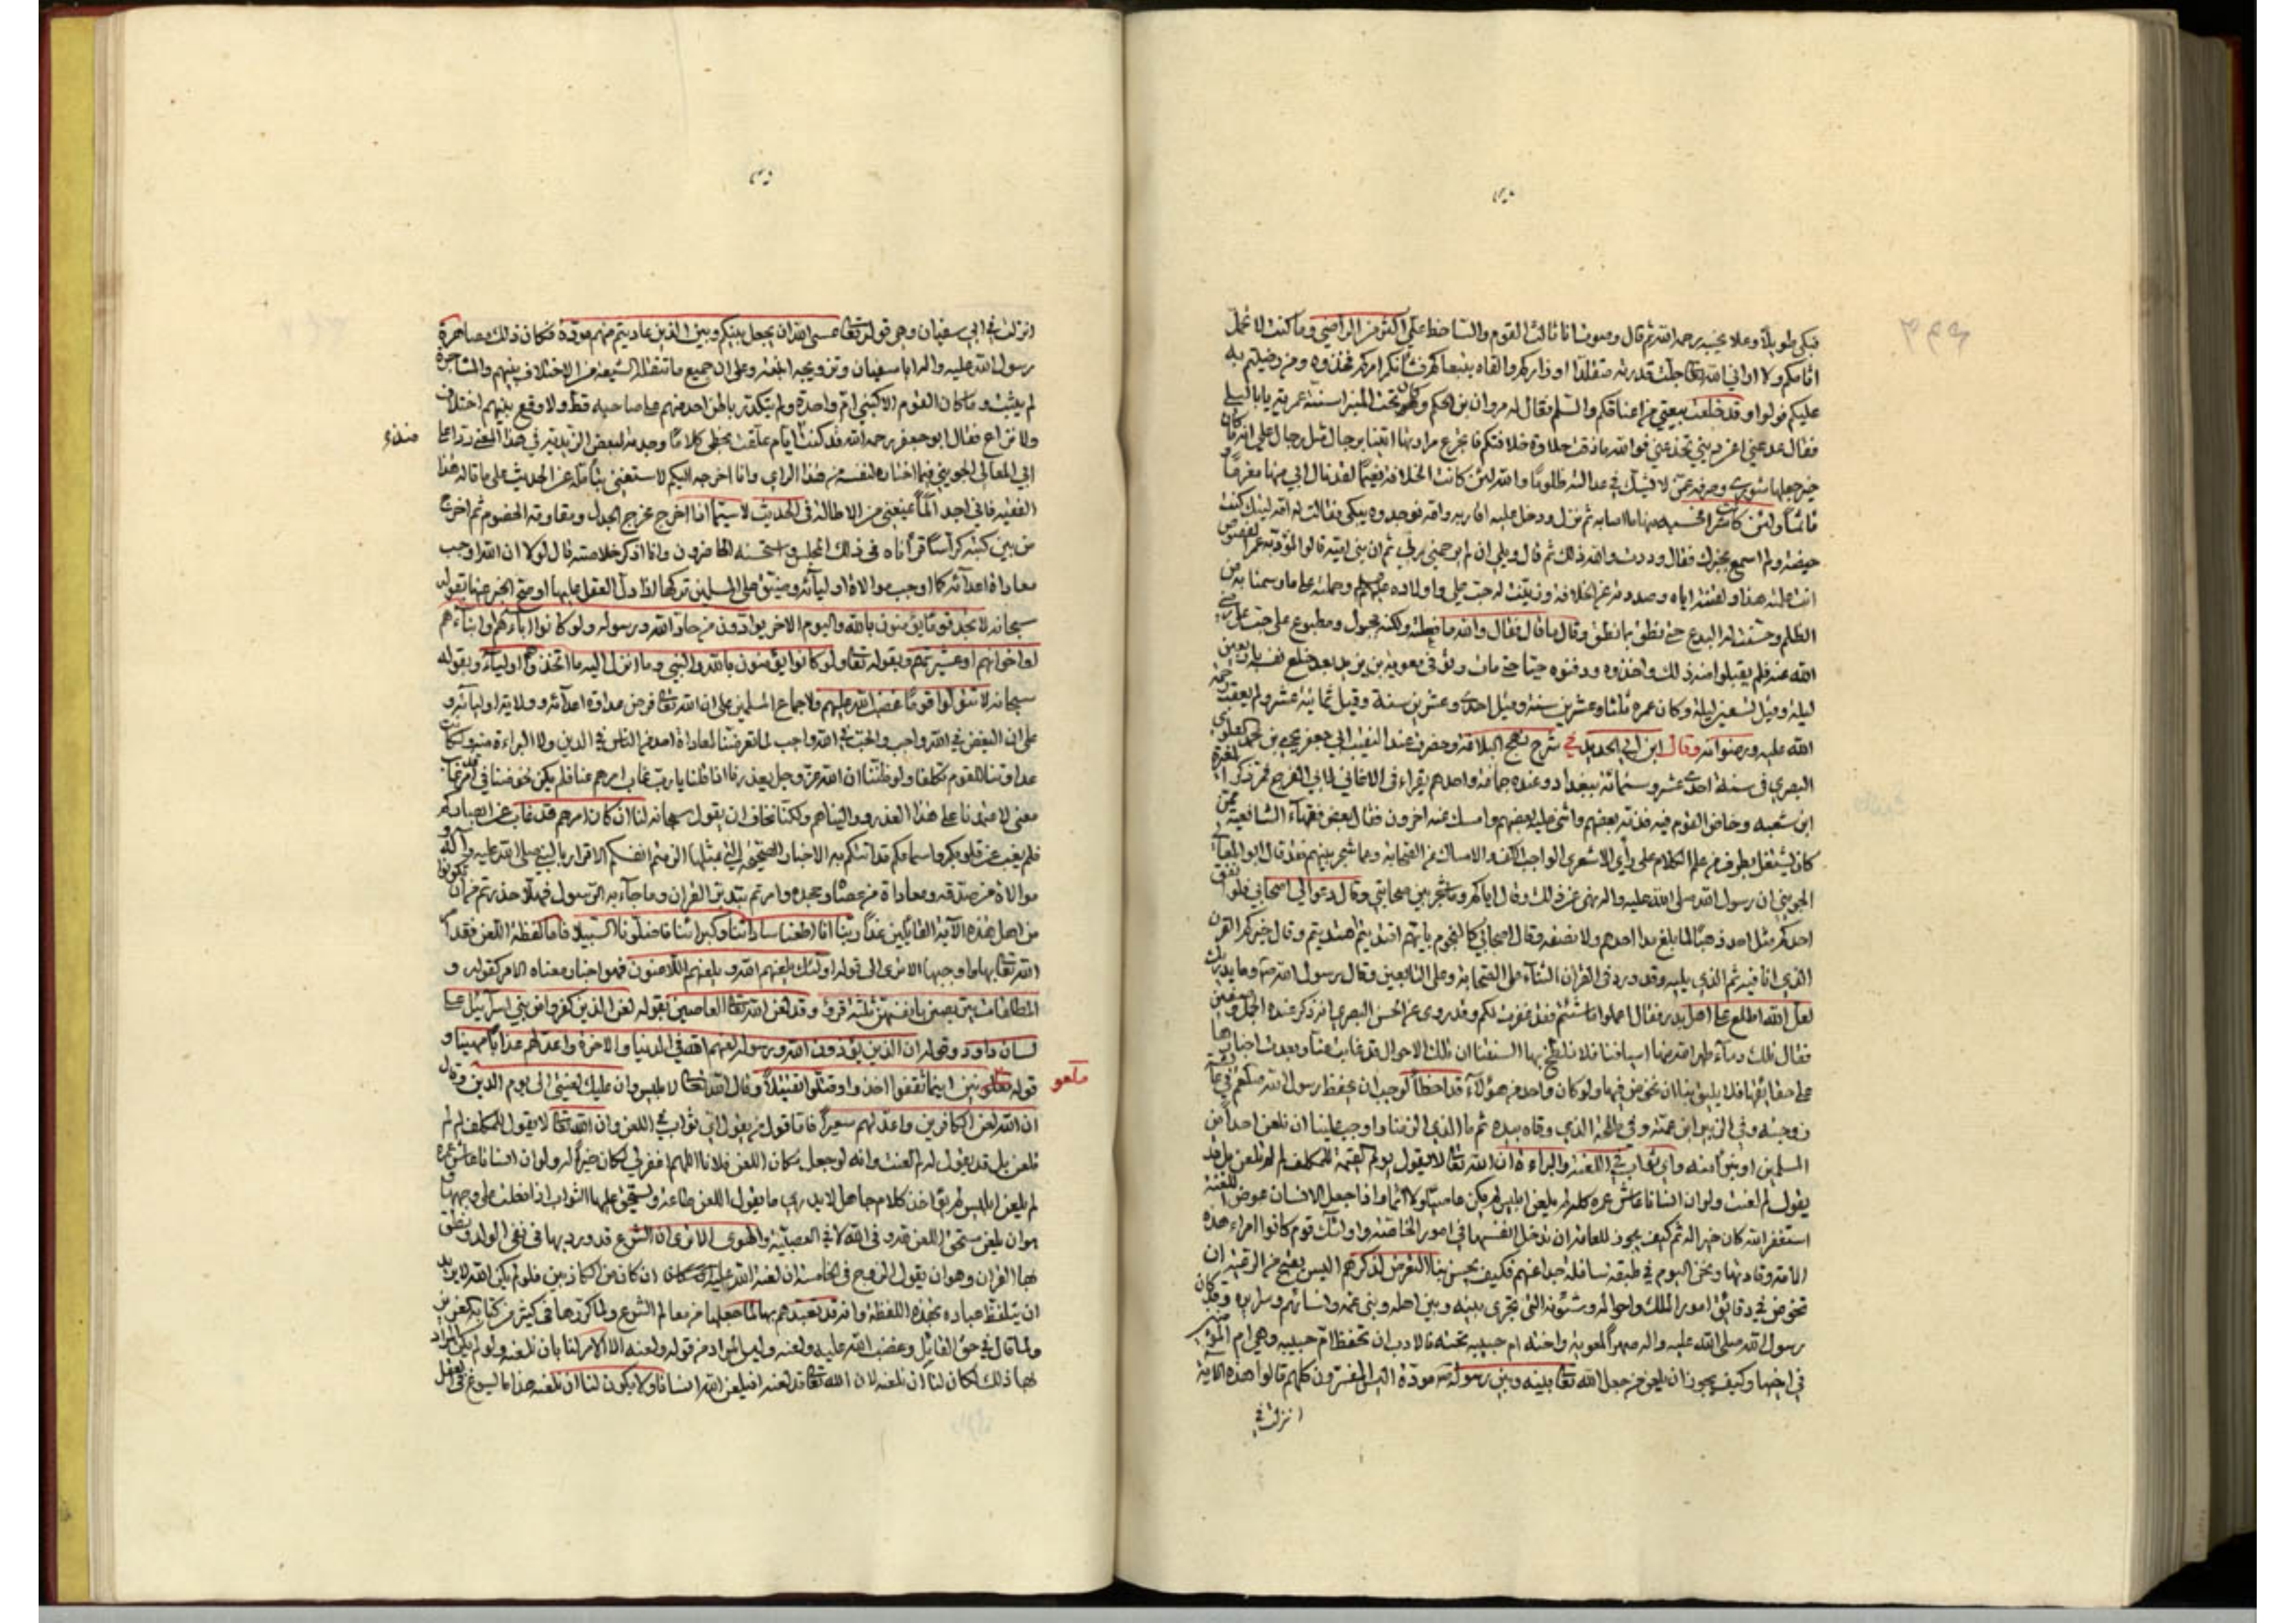 فبكى طويلا وعلا نحيبه رحمه الله ثم قال وصرت انا ثالث القوم والساخط علي اكثر من الراضي وما كنت لاتحمل
اثامكم ولا اراني الله تعالى جلت قدرته متقلدا اوزاركم والقاه بتبعاتكم فشانكم امركم فخذوه ومن رضيتم به
عليكم فولوا وقد خلعت بيعتي من اعناقكم والسلم فقال له مروان بن الحكم وكان تحت المنبر اسنة عمرية يا ابا ليلى
فقال اغد عني اعن ديني تخدعني فوالله ما ذقت حلاوة خلافتكم فاتجرع مرارتها ائتنا برجال مثل رجال على انه كان
حين جعلها شورى وصرفها عمن لا في عدالته ظلوما والله لئن كانت الخلافة مغنما لقد نال ابي منها مغرما و
ماثما ولئن كانت شرا فحسبه منها ما اصابه ثم نزل ودخل عليه اقاربه وامه فوجدوه يبكي فقالت له امه ليتك كنت
حيضة ولم اسمع بخبرك فقال وددت والله ذلك ثم قال ويلي ان لم يرحمني ربي ثم ان بني امية قالوا لمؤدبه عمر المقصوص
انت علمته هذا ولقنته اياه وصددته عن الخلافة وزينت له حب علي واولاده وحملته على ما وسمنا به من
الظلم وحسنت له البدع حتى نطق بما نطق وقال ما قال فقال والله ما فعلته ولكنه مجبول ومطبوع على حب علي رضي
الله عنه فلم يقبلوا منه ذلك واخذوه ودفنوه حيا حتى مات وتوفي معوية بن يزيد بعد خلع نفسه باربعين
ليلة وقيل تسعين ليلة وكان عمره ثلثا وعشرين سنة وقيل احدى وعشرين سنة وقيل ثمانية عشر ولم يعقب رحمة
الله عليه ورضوانه وقال ابن ابي الحديد في شرح نهج البلاغة وحضرت عند النقيب ابي جعفر يحيى بن محمد العلوي
البصري في سنة احدى عشر وستمائة ببغداد وعنده جماعة واحدهم يقراء في الاغاني لابي الفرج فمر ذكر المغيرة
ابن شعبه وخاض القوم فيه فذمه بعضهم واثنى عليه بعضهم وامسك عنه اخرون فقال بعض فقهاء الشافعية ممن
كان يشتغل بطرف من علم الكلام على راي الاشعري الواجب الكف والامساك عن الصحابة وعما شجر بينهم فقد قال ابو المعالي
الجويني ان رسول الله صلى الله عليه واله نهى عن ذلك وقال اياكم وما شجر بين صحابتي وقال دعوا لي اصحابي فلو انفق
احدكم مثل احد ذهبا لما بلغ مد احدهم ولا نصفه وقال اصحابي كالنجوم بايهم اقتديتم اهتديتم وقال خيركم القرن
الذي انا فيه ثم الذي يليه وقد ورد في القران الثناء على الصحابة وعلى التابعين وقال رسول الله وما يدريك
لعل الله اطلع على اهل بدر فقال اعملوا ما شئتم فقد غفرت لكم وقد روي عن الحسن البصري انه ذكر عنده الجمل وصفين
فقال تلك دماء طهر الله منها اسيافنا فلا نلطخ بها السنتنا ان تلك الاحوال قد غابت عنا وبعدت اخبارها
على حقائقها فلا يليق بنا ان نخوض فيها ولو كان واحد من هؤلاء قد اخطأ لوجب ان يحفظ رسول الله فيه في عائشة
زوجته وفي الزبير ابن عمته وفي طلحة الذي وقاه بيده ثم ما الذي الزمنا واوجب علينا ان نلعن احدا من
المسلمين او نبرأ منه واي ثواب في اللعنة والبراءة ان الله تعالى لا يقول يوم القيمة للمكلف لم لم تلعن بل قد
يقول لم لعنت ولو ان انسانا عاش عمره كله لم يلعن ابليس لم يكن عاصيا ولا اثما واذا جعل الانسان عوض اللعنة
استغفر الله كان خيرا له ثم كيف يجوز للعامة ان تدخل انفسها في امور الخاصة واولئك قوم كانوا امراء هذه
الامة وقادتها ونحن اليوم في طبقة سافلة جدا عنهم فكيف يحسن بنا التعرض لذكرهم اليس يقبح من الرعية ان
تخوض في دقائق امور الملك واحواله وشئونه التي تجري بينه وبين اهله وبني عمه ونسائه وسراريه وقد كان
رسول الله صلى الله عليه واله صهرا لمعوية واخته ام حبيبه تحته فالادب ان تحفظ ام حبيبه وهي ام المؤمنين
في اخيها وكيف يجوز ان يلعن من جعل الله تعالى بينه وبين رسوله مودة اليس المفسرون كلهم قالوا هذه الاية
انزلت في
انزلت في ابي سفيان وهي قوله تعالى عسى الله ان يجعل بينكم وبين الذين عاديتم منهم مودة فكان ذلك مصاهرة
رسول الله عليه واله ابا سفيان وتزويجه ابنته وعلى ان جميع ما تنقله الشيعة من الاختلاف بينهم والمشاجرة
لم يثبت وما كان القوم الا كبني ام واحدة ولم يتكدر باطن احد منهم على صاحبه قط ولا وقع بينهم اختلاف
ولا نزاع فقال ابو جعفر رحمه الله قد كنت منذ ايام علقت بخطي كلاما وجدته لبعض الزيدية في هذا المعنى ردا على
ابي المعالي الجويني فيما اختاره لنفسه من هذا الراي وانا اخرجه اليكم لاستغني بتأمله عن الحديث على ما قاله هذا
الفقيه فاني اجد ألما يمنعني من الاطالة في الحديث لا سيما اذا خرج مخرج الجدل ومقاومة الخصوم ثم اخرج
من بين كتبه كراسا قرأناه في ذلك المجلس واستحسنه الحاضرون وانا اذكر خلاصته قال لولا ان الله اوجب
معاداة اعدائه كما اوجب موالاة اوليائه وضيق على المسلمين تركها اذا دل العقل عليها او صح الخبر عنها بقوله
سبحانه لا تجد قوما يؤمنون بالله واليوم الاخر يوادون من حاد الله ورسوله ولو كانوا آباءهم او ابناءهم
او اخوانهم او عشيرتهم وبقوله تعالى ولو كانوا يؤمنون بالله والنبي وما انزل اليه ما اتخذوهم اولياء وبقوله
سبحانه لا تتولوا قوما غضب الله عليهم ولاجماع المسلمين على ان الله تعالى فرض عداوة اعدائه وولاية اوليائه و
على ان البغض في الله واجب والحب في الله واجب لما تعرضنا لمعاداة احد من الناس في الدين ولا البراءة منه ولكانت
عداوتنا للقوم تكلفا ولو ظننا ان الله عز وجل يعذرنا اذا قلنا يا رب غاب امرهم عنا فلم يكن لخوضنا في امر غاب عنا
معنى لاعتمدنا على هذا العذر وواليناهم ولكنا نخاف ان يقول سبحانه لنا ان كان امرهم قد غاب عن ابصاركم
فلم يغب عن قلوبكم واسماعكم قد اتتكم به الاخبار الصحيحة التي بمثلها الزمتم انفسكم الاقرار بالنبي صلى الله عليه وآله و
موالاة من صدقه ومعاداة من عصاه وجحده وامرتم بتدبر القران وما جاء به الرسول فهلا حذرتم من ان تكونوا
من اهل هذه الآية القائلين غدا ربنا انا اطعنا ساداتنا وكبراءنا فاضلونا السبيلا فاما لفظة اللعن فقد امر
الله تعالى بها واوجبها الا ترى الى قوله اولئك يلعنهم الله ويلعنهم اللاعنون فهو اخبار معناه الامر كقوله و
المطلقات يتربصن بانفسهن ثلثة قروء وقد لعن الله تعالى العاصين بقوله لعن الذين كفروا من بني اسرائيل على
لسان داود وقوله ان الذين يؤذون الله ورسوله لعنهم الله في الدنيا والاخرة واعد لهم عذابا مهينا و
قوله ملعونين اينما ثقفوا اخذوا وقتلوا تقتيلا وقال الله تعالى لابليس وان عليك لعنتي الى يوم الدين وقال
ان الله لعن الكافرين واعد لهم سعيرا فاما قول من يقول اي ثواب في اللعن وان الله تعالى لا يقول للمكلف لم لم
تلعن بل قد يقول له لم لعنت وانه لو جعل مكان اللعن فلانا اللهم اغفر لي لكان خيرا له ولو ان انسانا عاش عمره
لم يلعن ابليس لم يؤاخذ كلام جاهل لا يدري ما يقول اللعن طاعة ويستحق عليها الثواب اذا فعلت على وجهها و
هو ان يلعن مستحق اللعن في الله لا في العصبية والهوى الا ترى ان الشرع قد ورد بها في نفي الولد ونطق
بها القران وهو ان يقول الزوج في الخامسة ان لعنة الله عليه ان كان من الكاذبين فلو لم يكن الله يريد
ان يتلفظ عباده بهذه اللفظة وانه قد تعبدهم بها لما جعلها من معالم الشرع ولما كررها في كثير من كتابه العزيز
ولما قال في حق القاتل وغضب الله عليه ولعنه وليس المراد من قوله ولعنه الا الامر لنا بان نلعنه ولو لم يكن المراد
بها ذلك لكان لنا ان نلعنه لان الله تعالى قد لعنه افيلعن الله انسانا ولا يكون لنا ان نلعنه هذا ما لا يسوغ في العقل
منذ
ملعو